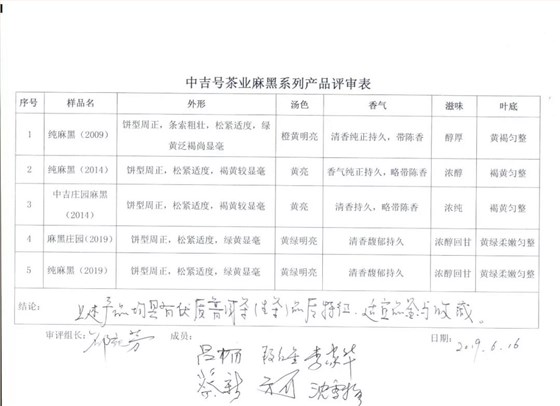 中吉号茶业麻黑系列产品评审表
序号 样品名 外形 汤色 香气 滋味 叶底
1 纯麻黑（2009） 饼型周正，条索粗壮，松紧适度，绿黄泛褐尚显毫 橙黄明亮 清香纯正持久，带陈香 醇厚 黄褐匀整
2 纯麻黑（2014） 饼型周正，松紧适度，褐黄较显毫 黄亮 香气纯正持久，略带陈香 浓醇 褐黄匀整
3 中吉庄园麻黑（2014） 饼型周正，松紧适度，褐黄较显毫 黄亮 清香持久，略带陈香 浓纯 褐黄匀整
4 麻黑庄园（2019） 饼型周正，松紧适度，绿黄显毫 黄绿明亮 清香馥郁持久 浓醇回甘 黄绿柔嫩匀整
5 纯麻黑（2019） 饼型周正，松紧适度，绿黄显毫 黄绿明亮 清香馥郁持久 浓醇回甘 黄绿柔嫩匀整
结论： 上述产品均具有优质普洱茶（生茶）品质特征，适宜品鉴与收藏。
评审组长： 成员： 日期：2019.6.16
蔡新 沈雪梅